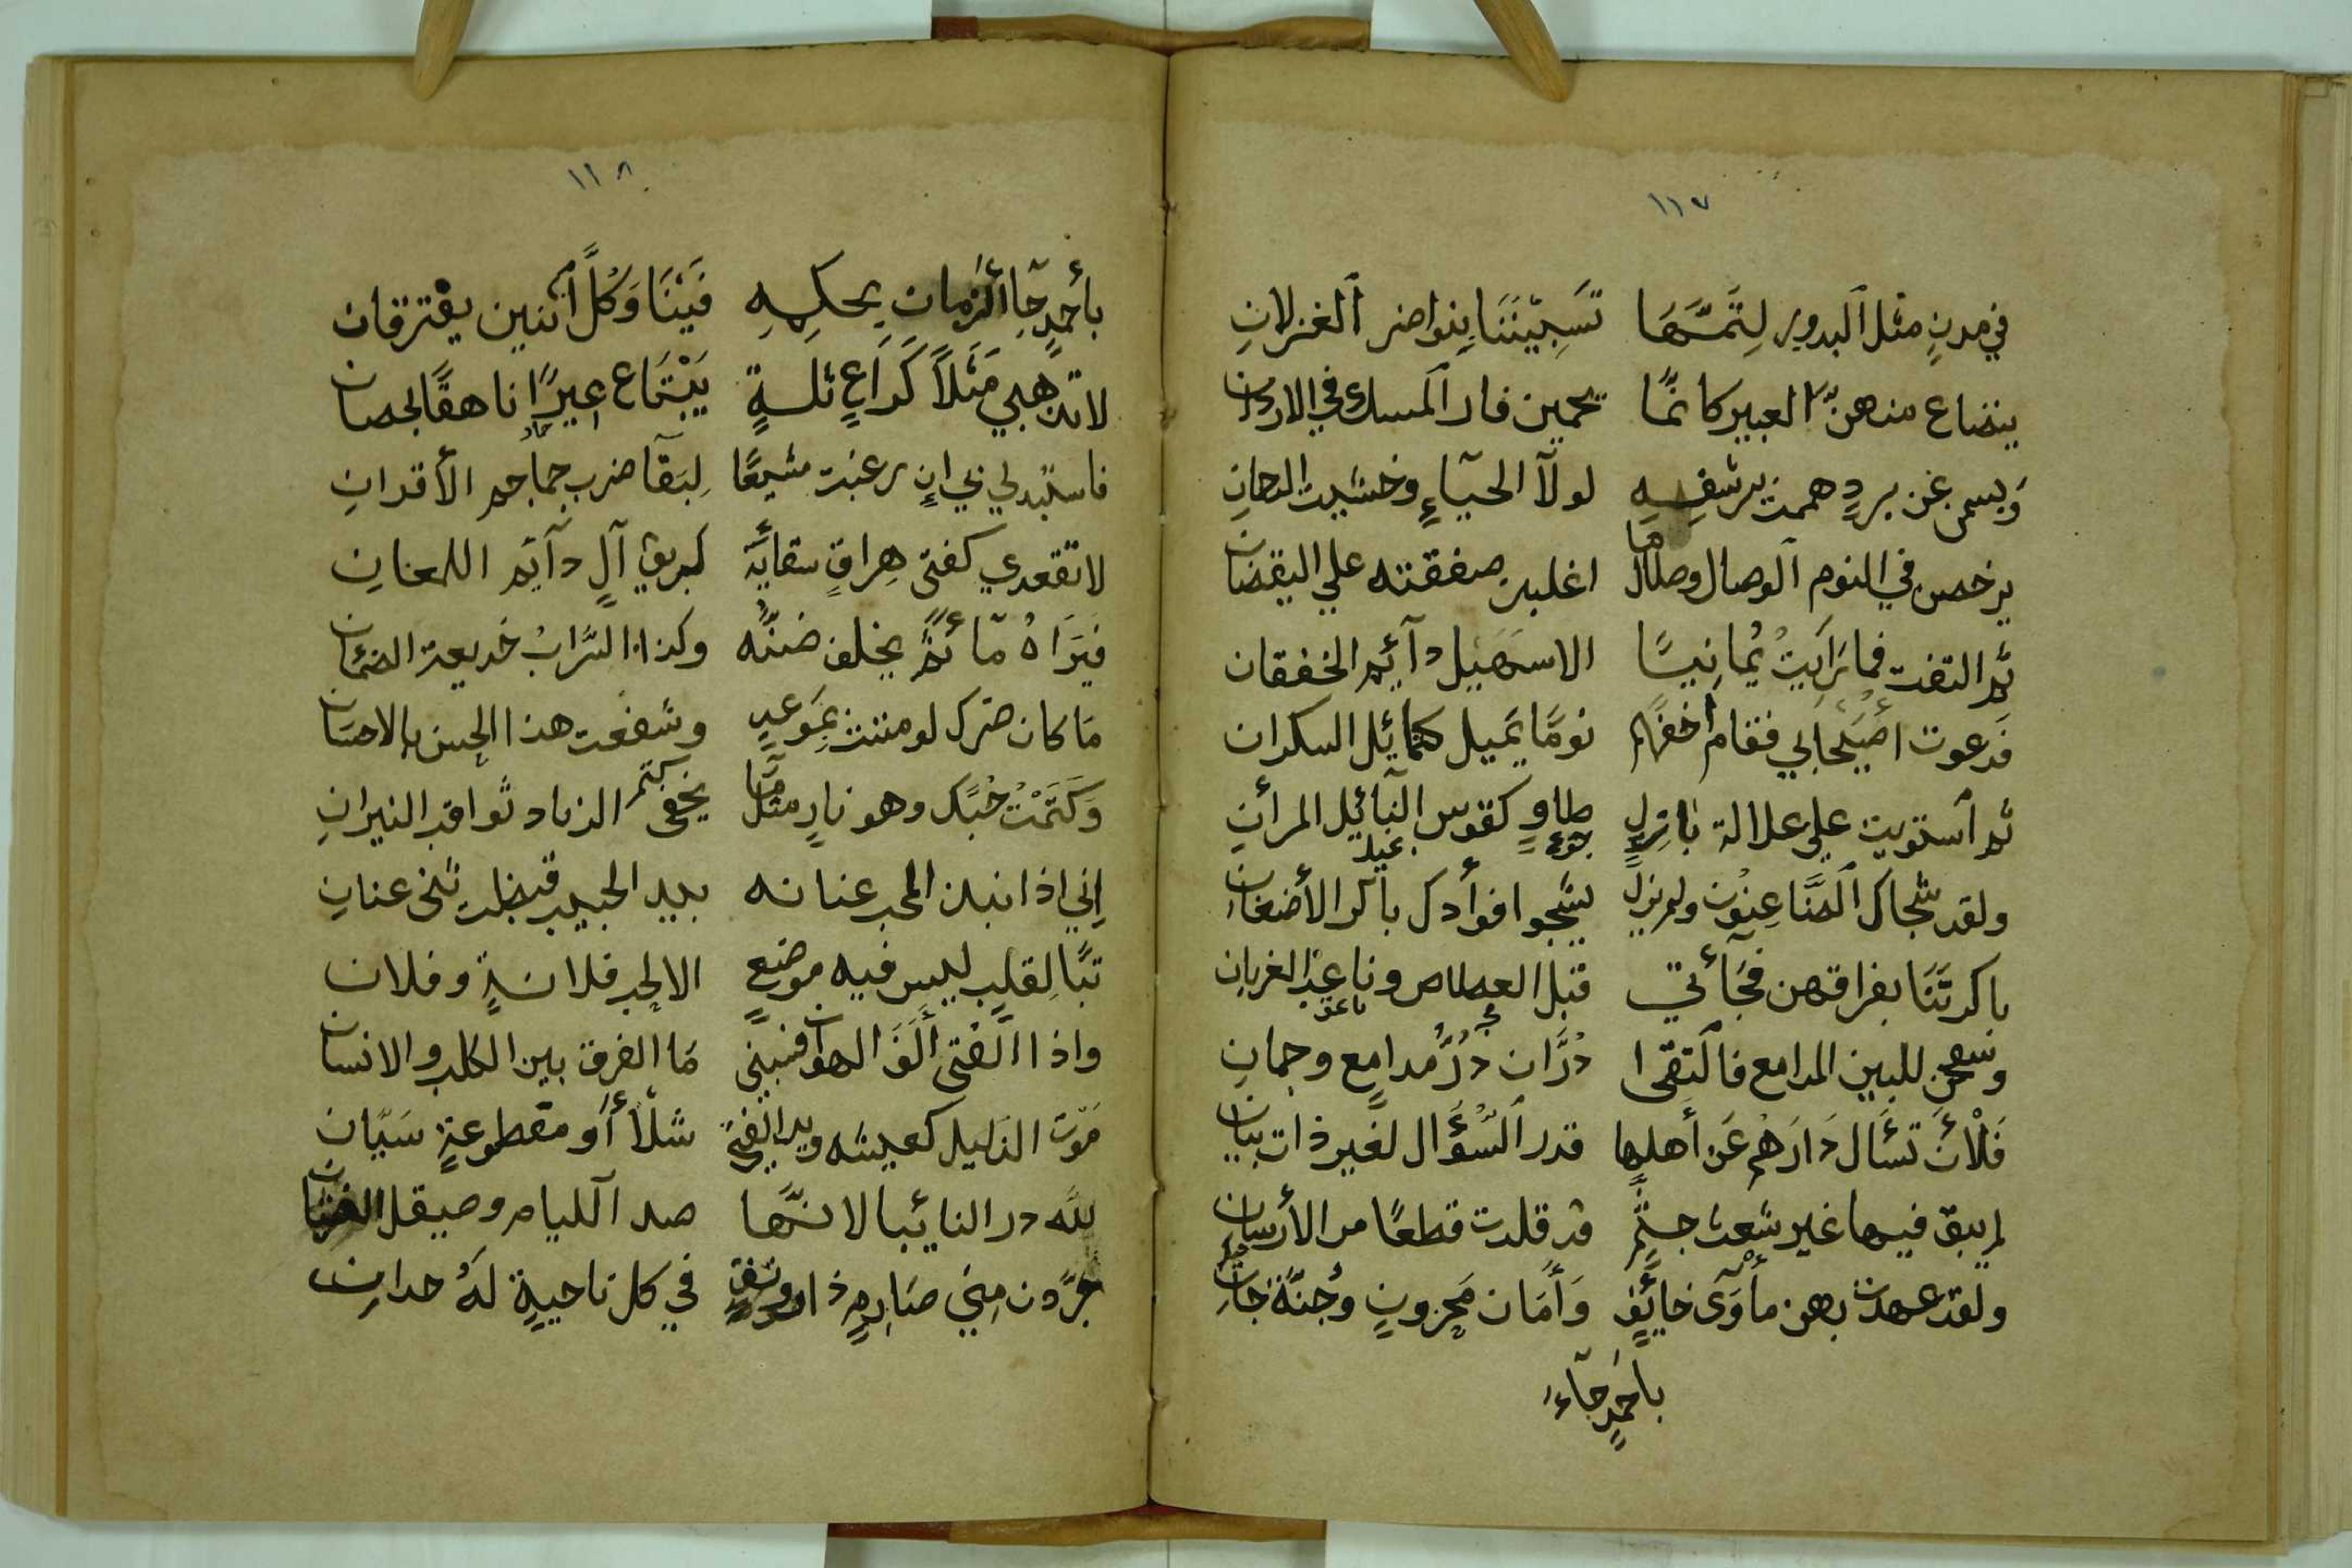 ١١٧
في مدنٍ مثل البدور لِتَمِّهَا تَسَبِّيْنَنَا بنواضر الغزلانِ
ينضاع منهنّ العبير كانمّا يحمين فار المسك في الاردان
وَبسمن عن بردٍ هممت برشفِهِ لولآ الحيآءِ وخشيت الدحانِ
يرخصن في النوم الوصال وطالما اغلين صفقته علي اليقضان
ثم التفت فما رَايتُ مُانِيسًا الا سهيل دآئم الخفقان
فدعوت أُصَيْحابي فقام أخفهم نومًا يميل كمائل السكران
ثم استويت علي علالة بازلٍ طاوٍ كقوس النبآئل المرآنِ
ولقد شجاك الضَّاعِنُون ولم يزل يشجوا فوأدك باكر الأضغان
باكرتَنَا بفراقهن فجآئتي قبل العطاس وناعب الغربان
وسفحن للبين المدامع فالتقى دُرَّان دُرُّ مدامع وجمانِ
فَلْأَن تسَأل دَارَهم عَن أهلها قدر السُّؤَال لغير ذات بيان
لم يبق فيها غير شعث جثّم قد قلدت قطعًا من الأرسان
ولقد عهدت بهن مأوَى خائفٍ وَأمَان محزونٍ وجُنّة جانِ
بأحمدٍ جآءَ
١١٨
بأحمدٍ جآء الزمان بحكمِهِ فَيْنَا وَكُلّ اثنين يفترقان
لا تذهبي مَثَلًا كَرَاعِ ثلةٍ يَبْتَاع عيرًا ناهقًا بحصان
فاستبدلي بي ان رغبت مشيعًا لِبَقًا ضرب جماجم الأقدانِ
لا تقعدي كفتى هِراقٍ سقائَهُ لبريق آلٍ دآئم اللمعانِ
فيَرَاهُ مآئمًّ يخلف ضنّه وكذا السّرابُ خديعة الضمئان
مَا كان ضرك لو مننت بمَوعدٍ وشفعت هذا الحسن بالاحسان
وَكَتَمْتُ حُبّك وهو نارٍ مثلما يخفى الزناد ثواقب النيرانِ
إني اذا نبذ المحب عنانه بيد الحبيب قبضت ثنى عنانِ
تبًّا لِقلبٍ ليس فيه موضعٍ الا لحب فلانةٍ وفلان
واذا الفتى أَلَفَ الهوان فبيني مَا الفرق بين الكلب والانسان
مَوْت الذليل كعيشه ويد الفتى شلّا أو مقطوعةٍ سَيَّان
لله در النائبات لانها صدا اللئام وصيقل
جرّدن مِني صَارِمٍ ذا رونقٍ في كل ناحيةٍ لَهُ حدانِ